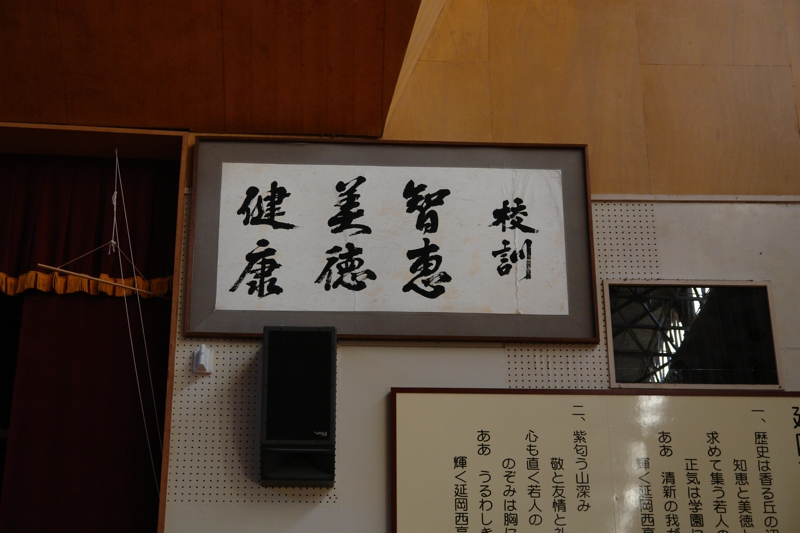 校訓
智恵
美徳
健康
一、歴史は香る丘の
知恵と美徳
求めて集う若人の
正気は学園に
ああ 清新の我が
輝く延岡西高
二、紫匂う山深み
敬と友情と礼
心も直く若人の
のぞみは胸に
ああ うるわしき
輝く延岡西高